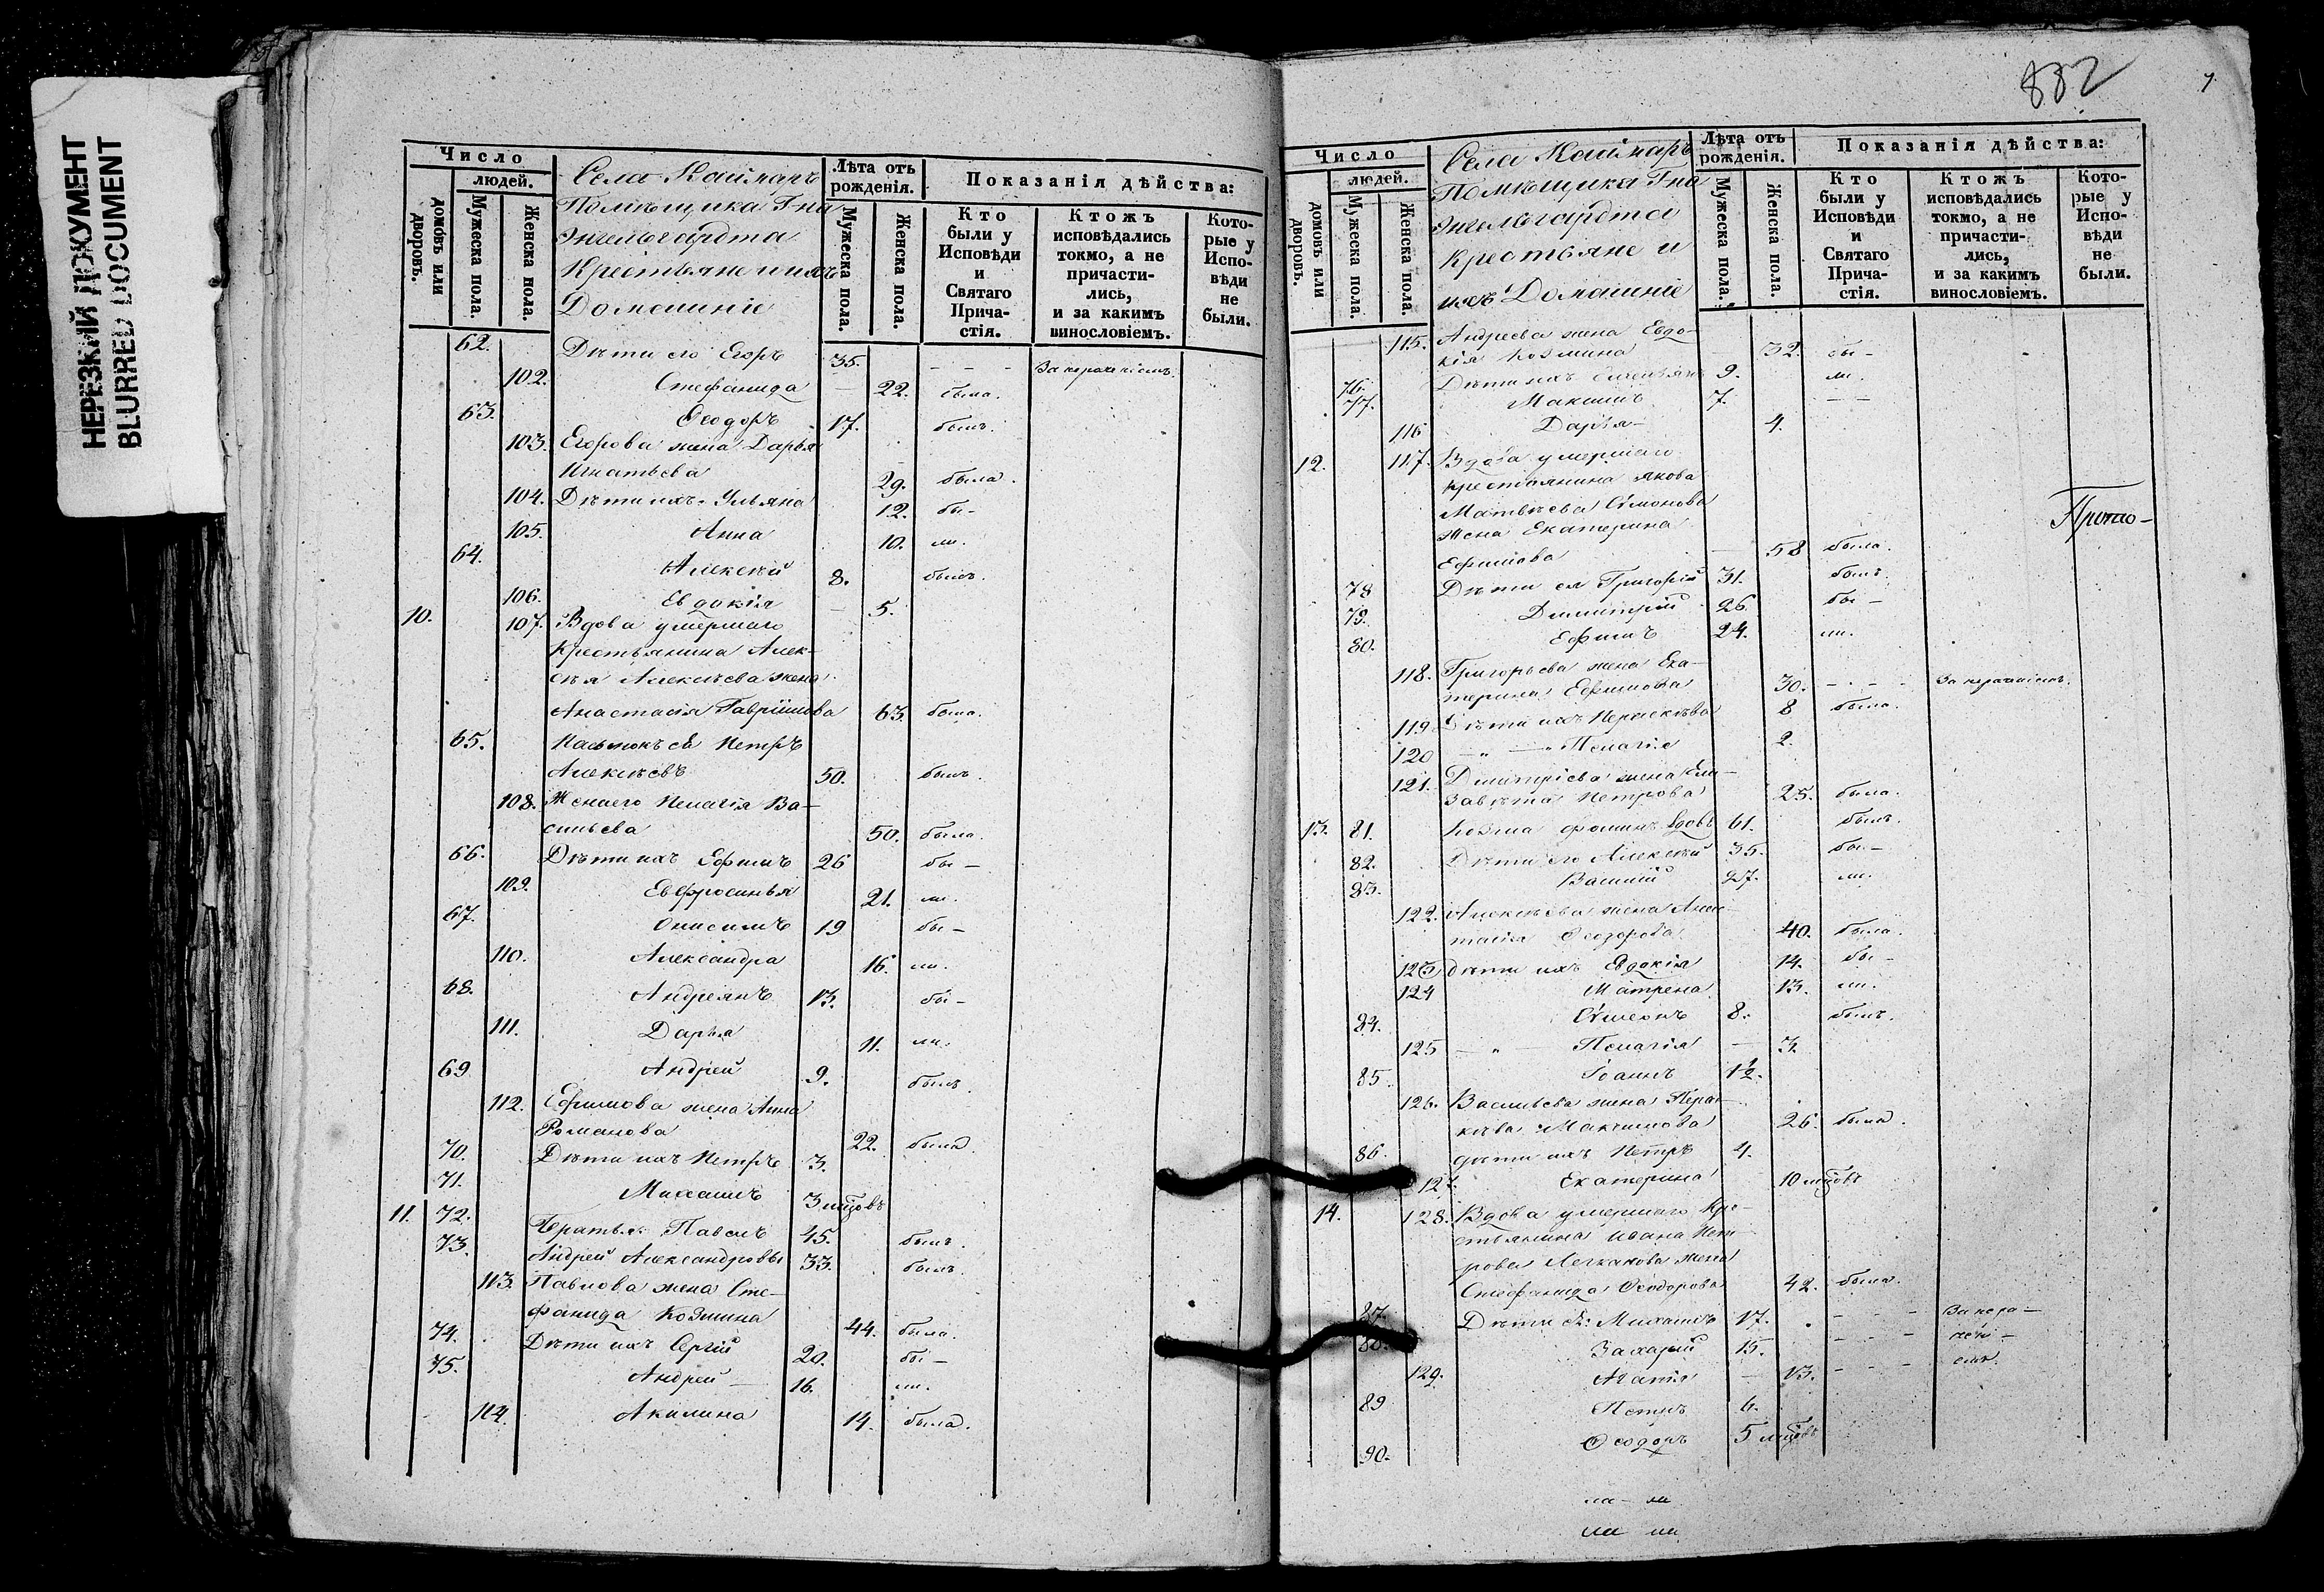 НЕРЕЗКИЙ ДОКУМЕНТ
BLURRED DOCUMENT
Число
людей.
домовъ или дворовъ.
Мужеска пола.
Женска пола.
Села Каймаръ
Помѣщика Г-на
Энгельгардта
Крестьяне и ихъ
Домашніе
Лѣта отъ рожденія.
Мужеска пола.
Женска пола.
Показанія дѣйства:
Кто были у Исповѣди и Святаго Причастія.
Ктожъ исповѣдались токмо, а не причастились, и за какимъ винословіемъ.
Которые у Исповѣди не были.
62. Дѣти его Егоръ 35. - - - За нераченіемъ.
102. Стефанида 22. была.
63. Ѳеодоръ 17. былъ.
103. Егорова жена Дарья
Игнатьева 29. была.
104. Дѣти ихъ: Ульяна 12. бы-
105. Анна 10. ли.
64. Алексѣй 8. былъ.
106. Евдокія 5.
10. 107. Вдова умершаго
Крестьянина Алек-
сѣя Алексѣева жена
Анастасія Гавріилова 63. была.
65. Пасынокъ ея Петръ
Алексѣевъ 50. былъ.
108. Жена его Пелагія Ва-
сильева 50. была.
66. Дѣти ихъ Ефимъ 26 бы-
109. Евфросинья 21. ли.
67. Онисимъ 19 бы-
110. Александра 16. ли.
68. Андреянъ 13. бы-
111. Дарья 11. ли.
69 Андрей 9. былъ.
112. Ефимова жена Анна
Романова 22. была.
70. Дѣти ихъ Петръ 3.
71. Михаилъ 3 мцовъ
11. 72. Братья: Павелъ 45. былъ.
73. Андрей Александровы 33. былъ.
113. Павлова жена Сте-
фанида Козмина 44. была.
74. Дѣти ихъ Сергій 20. бы-
75. Андрей 16. ли.
114. Акилина 14. была.
882
7
Число
людей.
домовъ или дворовъ.
Мужеска пола.
Женска пола.
Села Каймаръ
Помѣщика Г-на
Энгельгардта
Крестьяне и
ихъ Домашніе
Лѣта отъ рожденія.
Мужеска пола.
Женска пола.
Показанія дѣйства:
Кто были у Исповѣди и Святаго Причастія.
Ктожъ исповѣдались токмо, а не причастились, и за какимъ винословіемъ.
Которые у Исповѣди не были.
115. Андреева жена Евдо-
кія Козмина 32. бы-
76. Дѣти ихъ 9. ли.
77. Максимъ 7. - -
116 Дарія 4.
12. 117. Вдова умершаго
крестьянина Якова
Матвѣева Симонова
жена Екатерина
Ефимова 58 была.
78 Дѣти ея Григорій 31. былъ.
79. Димитрій 26. бы-
80. Ефимъ 24. ли.
118. Григорьева жена Ека-
терина Ефимова 30. - - - За нераченіемъ.
119 Дѣти ихъ Параскѣва 8 была.
120 - " - Пелагія 2.
121. Димитріева жена Ели-
завета Петрова 25. была.
13. 81. Козма Ѳоминъ вдовъ 61. былъ.
82. Дѣти его Алексѣй 35. бы-
83. Василій 27. ли.
122. Алексѣева жена Анас-
тасія Ѳеодорова 40. была.
123 Дѣти ихъ Евдокія 14. бы-
124 Матрена 13. ли.
84. Симеонъ 8. былъ.
125 - " - Пелагія 3.
85. Іоаннъ 1½.
126. Васильева жена Парас-
кѣва Максимова 26. была.
86. дѣти ихъ Петръ 4.
127. Екатерина 10 мцовъ
14. 128. Вдова умершаго Кре-
стьянина Ивана Пет-
рова жена
Стефанида Ѳеодорова 42. была.
87. Дѣти ея: Михаилъ 17. - - - За нера-
88. Захарій 15. - - - чені-
129. Агапія 13. - - - емъ.
89 Петръ 6.
90. Ѳеодоръ 5 мцовъ
Прото-